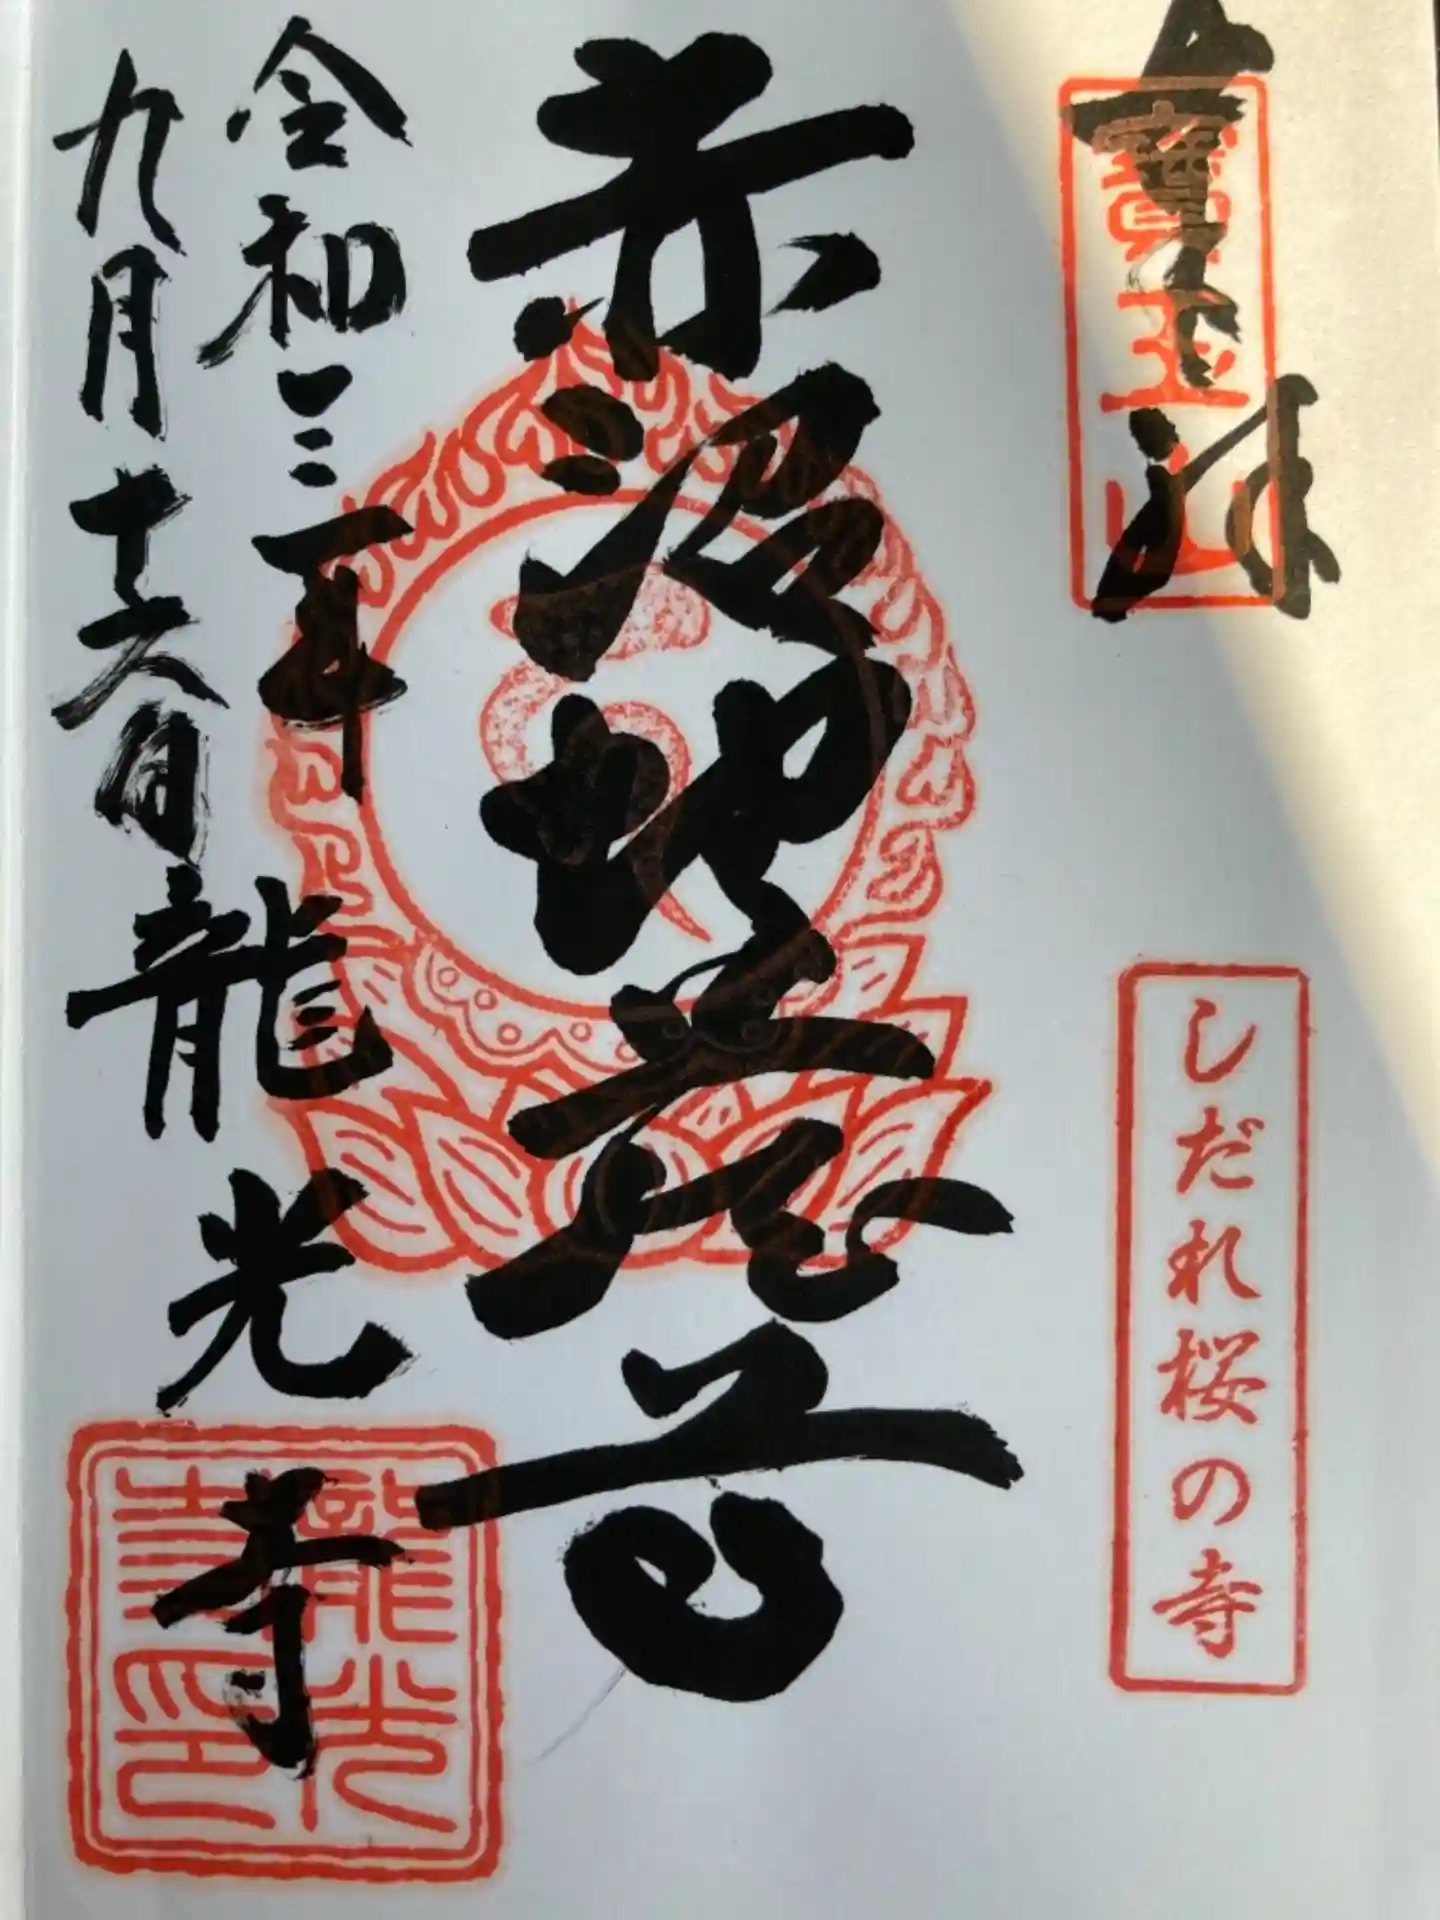 奉拝
寳玉山
しだれ桜の寺
赤沼地蔵尊
令和三年
九月十六日
龍光寺
龍光寺印